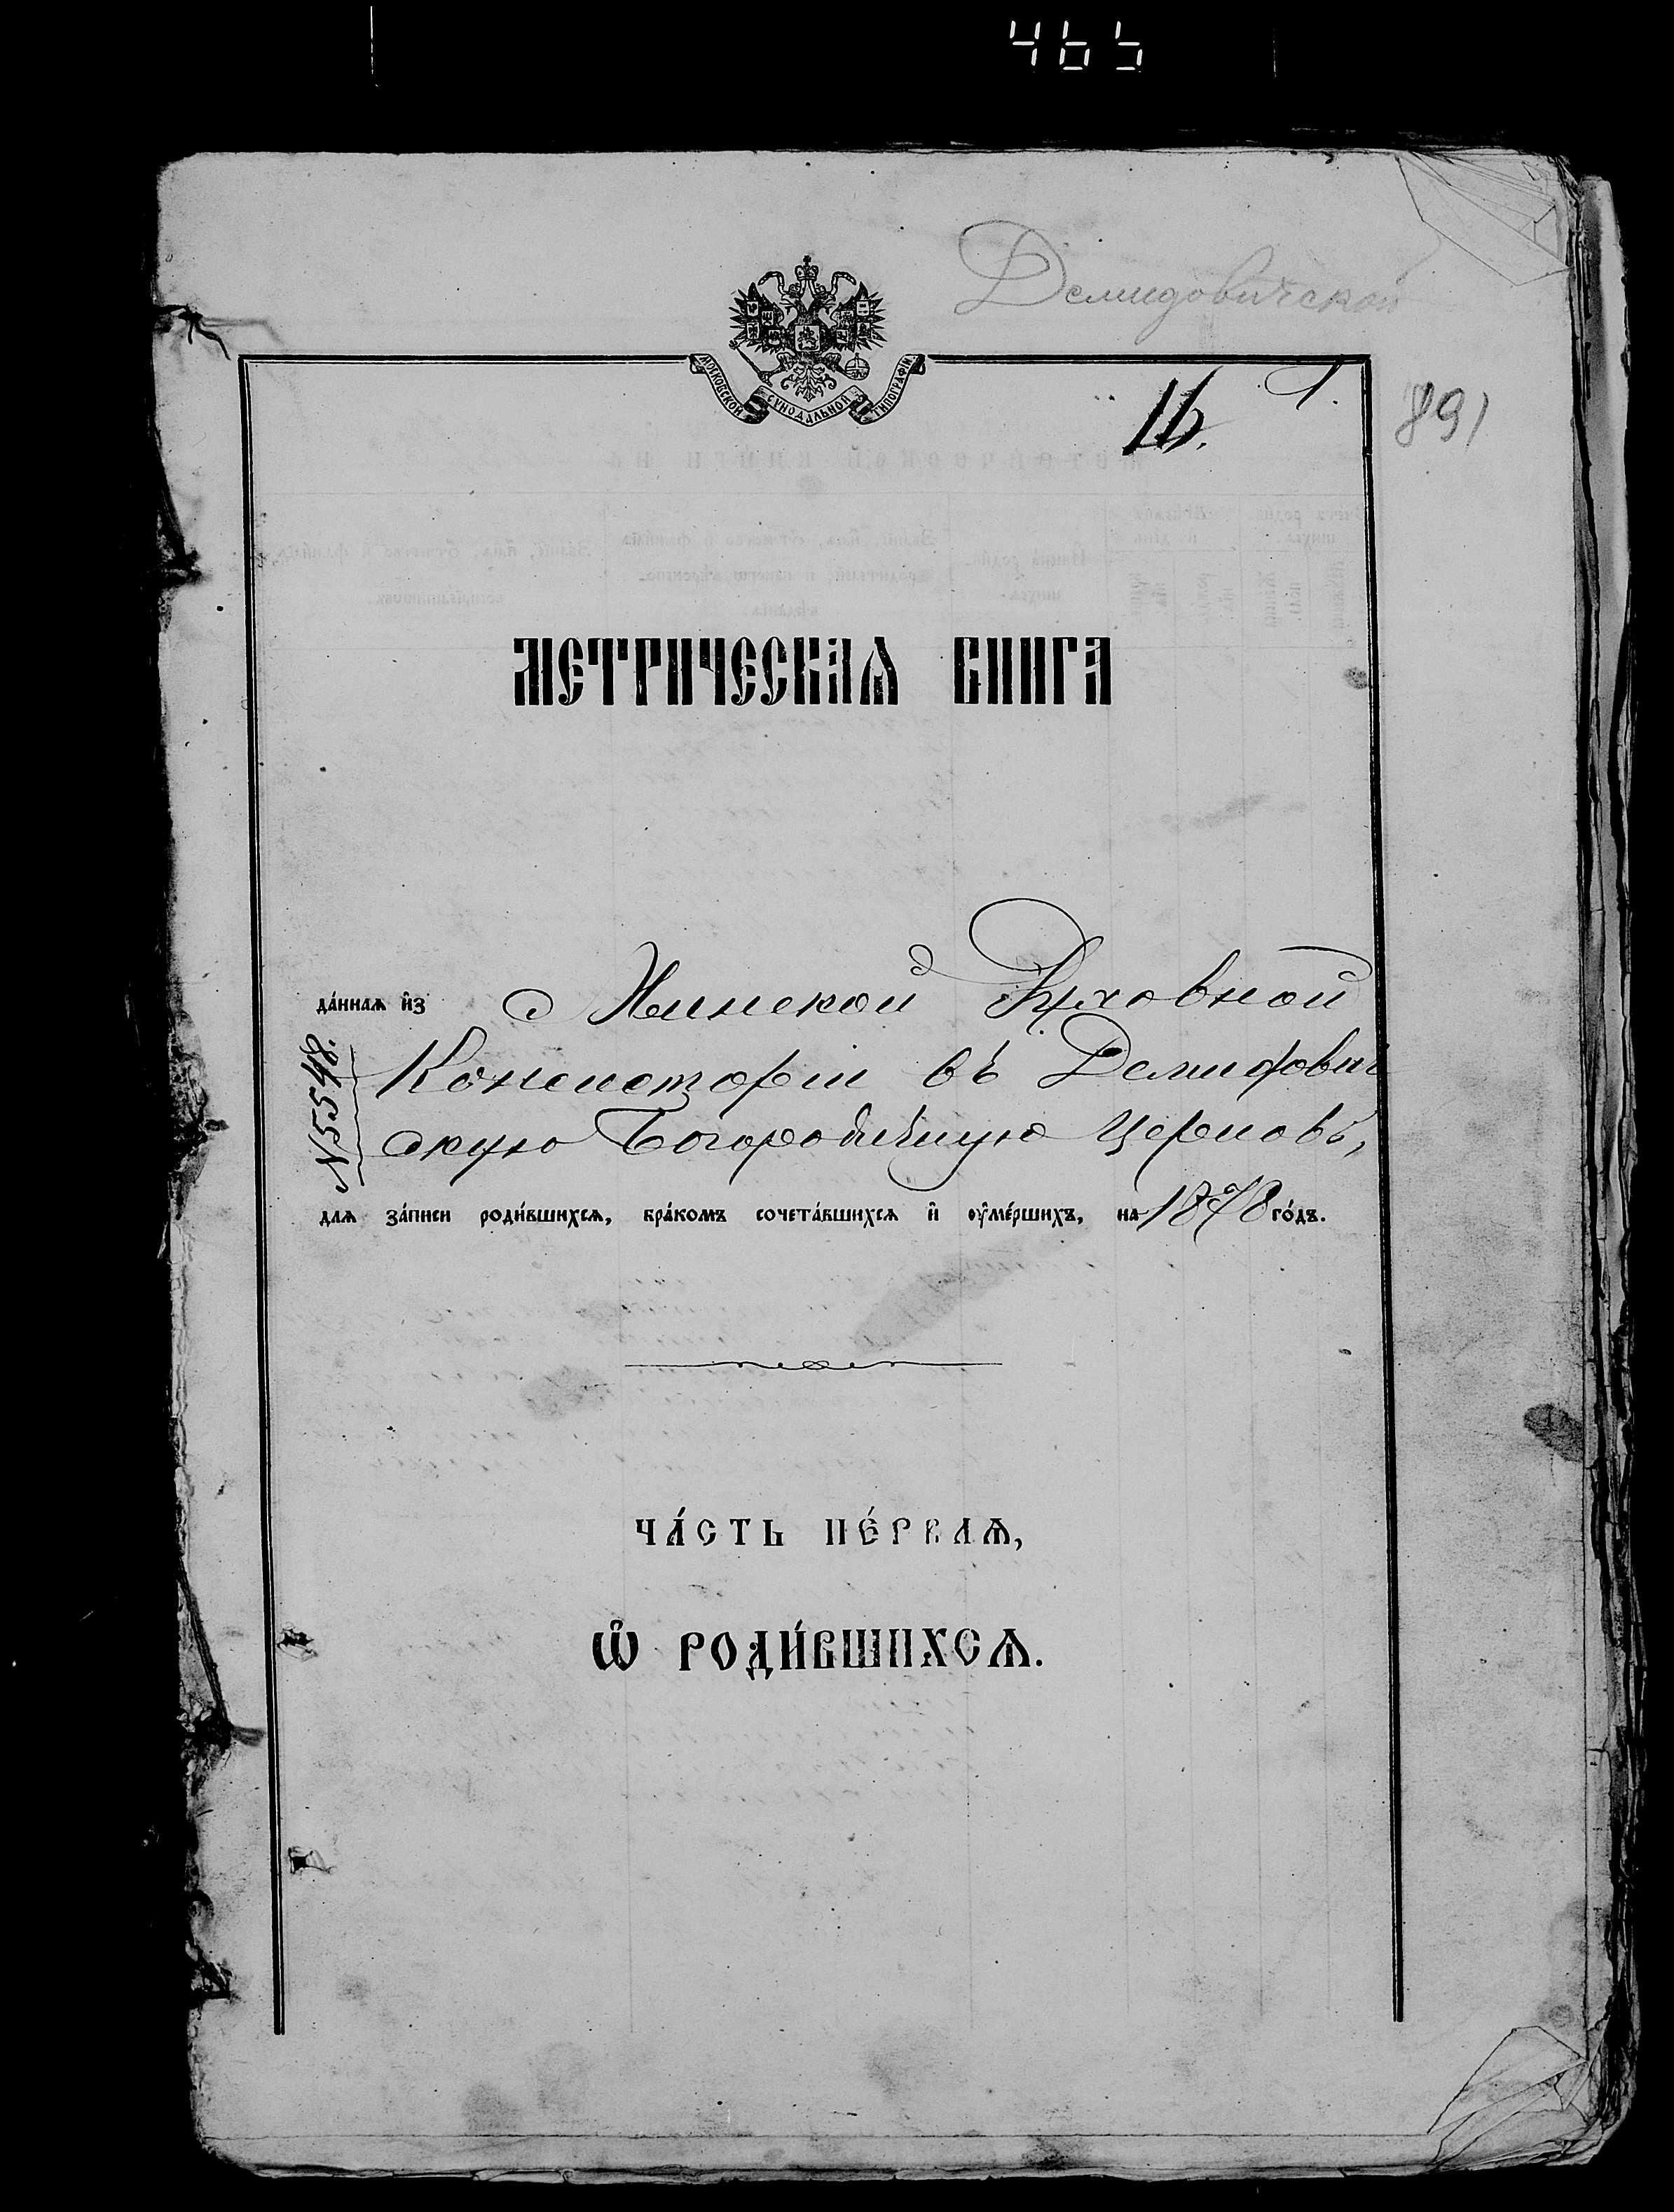 465
Демидовичской
МОСКОВСКОЙ СѴНОДАЛЬНОЙ ТИПОГРАФІИ
16. 1.
891
МЕТРИЧЕСКАѦ КНИГА
да́ннаѧ и҆з Минской Духовной
Консисторіи въ Демидович
скую Богородичную Церковь,
№ 5548.
длѧ за́писи роди́вшихсѧ, бра́комъ сочета́вшихсѧ и҆ оу҆ме́ршихъ, на 1878 го́дъ.
ЧА́СТЬ ПЕ́РВАѦ,
Ѡ҆ РОДИ́ВШИХСѦ.